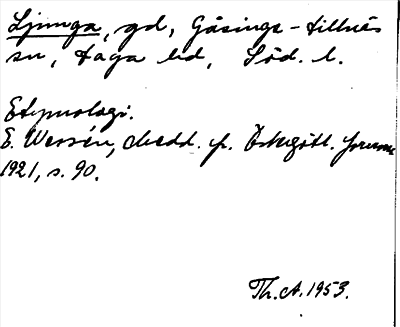 Ljunga, gd, Gåsinge-Dillnäs
sn, Daga hd, Söd. l.
Etymologi.
E. Wessén, Medd. fr. Östergötl. fornm.
1921, s. 90.
Th. A. 1953.